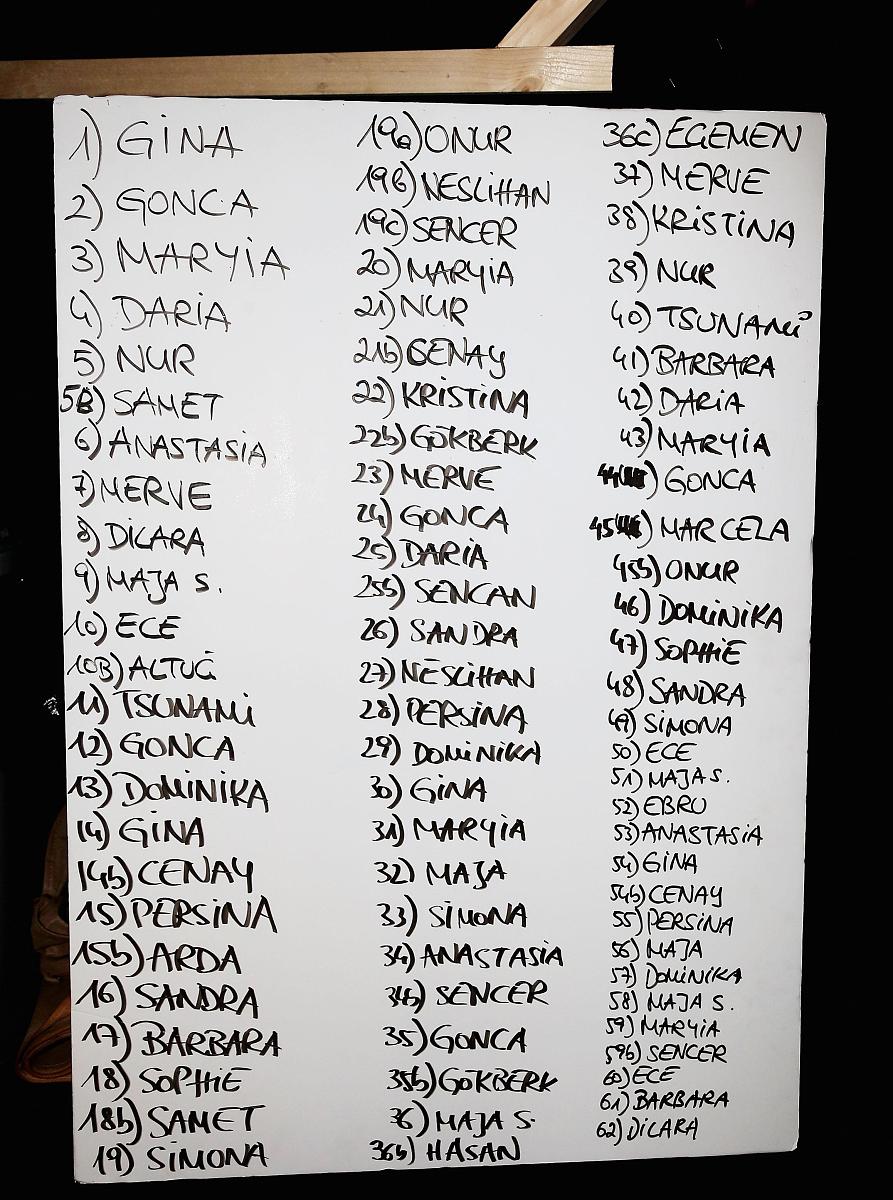 1) GiNA
2) GONCA
3) MARYiA
4) DARiA
5) NUR
5B) SAMET
6) ANASTASiA
7) MERVE
8) DiLARA
9) MAJA S.
10) ECE
10B) ALTUĞ
11) TSUNAMi
12) GONCA
13) DOMiNiKA
14) GiNA
14b) CENAY
15) PERSiNA
15b) ARDA
16) SANDRA
17) BARBARA
18) SOPHiE
18b) SAMET
19) SiMONA
19a) ONUR
19b) NESLiHAN
19c) SENCER
20) MARYiA
21) NUR
21b) CENAY
22) KRiSTiNA
22b) GÖKBERK
23) MERVE
24) GONCA
25) DARiA
25b) SENCAN
26) SANDRA
27) NESLiHAN
28) PERSiNA
29) DOMiNiKA
30) GiNA
31) MARYiA
32) MAJA
33) SiMONA
34) ANASTASiA
34b) SENCER
35) GONCA
35b) GÖKBERK
36) MAJA S.
36b) HASAN
36c) EGEMEN
37) MERVE
38) KRiSTiNA
39) NUR
40) TSUNAMi
41) BARBARA
42) DARiA
43) MARYiA
44) GONCA
45) MARCELA
45b) ONUR
46) DOMiNiKA
47) SOPHiE
48) SANDRA
49) SiMONA
50) ECE
51) MAJA S.
52) EBRU
53) ANASTASiA
54) GiNA
54b) CENAY
55) PERSiNA
56) MAJA
57) DOMiNiKA
58) MAJA S.
59) MARYiA
59b) SENCER
60) ECE
61) BARBARA
62) DiLARA